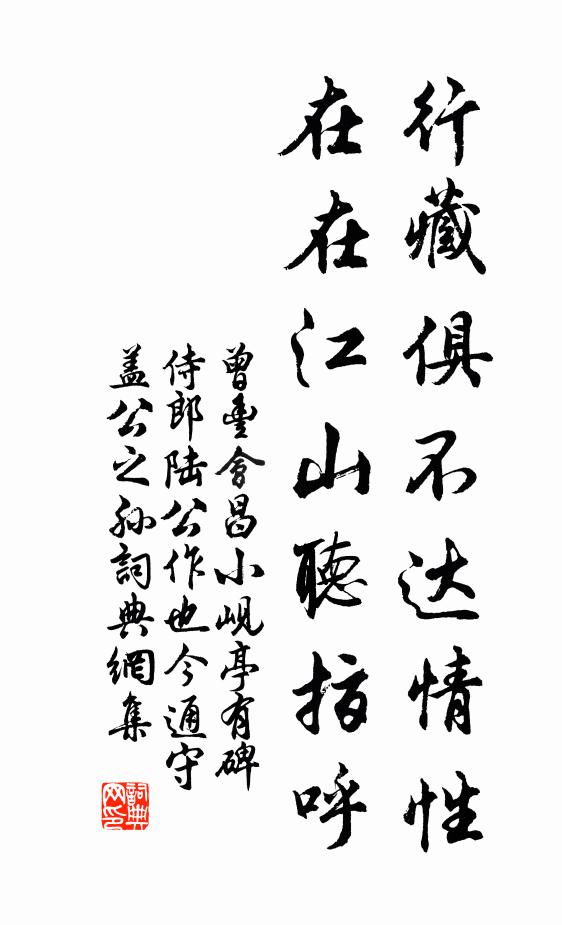 行藏俱不达情性
在在江山聽指呼
曾豐會昌小峴亭有碑
侍郎陆公作也今通守
盖公之孙詞典網集
詞典
网印